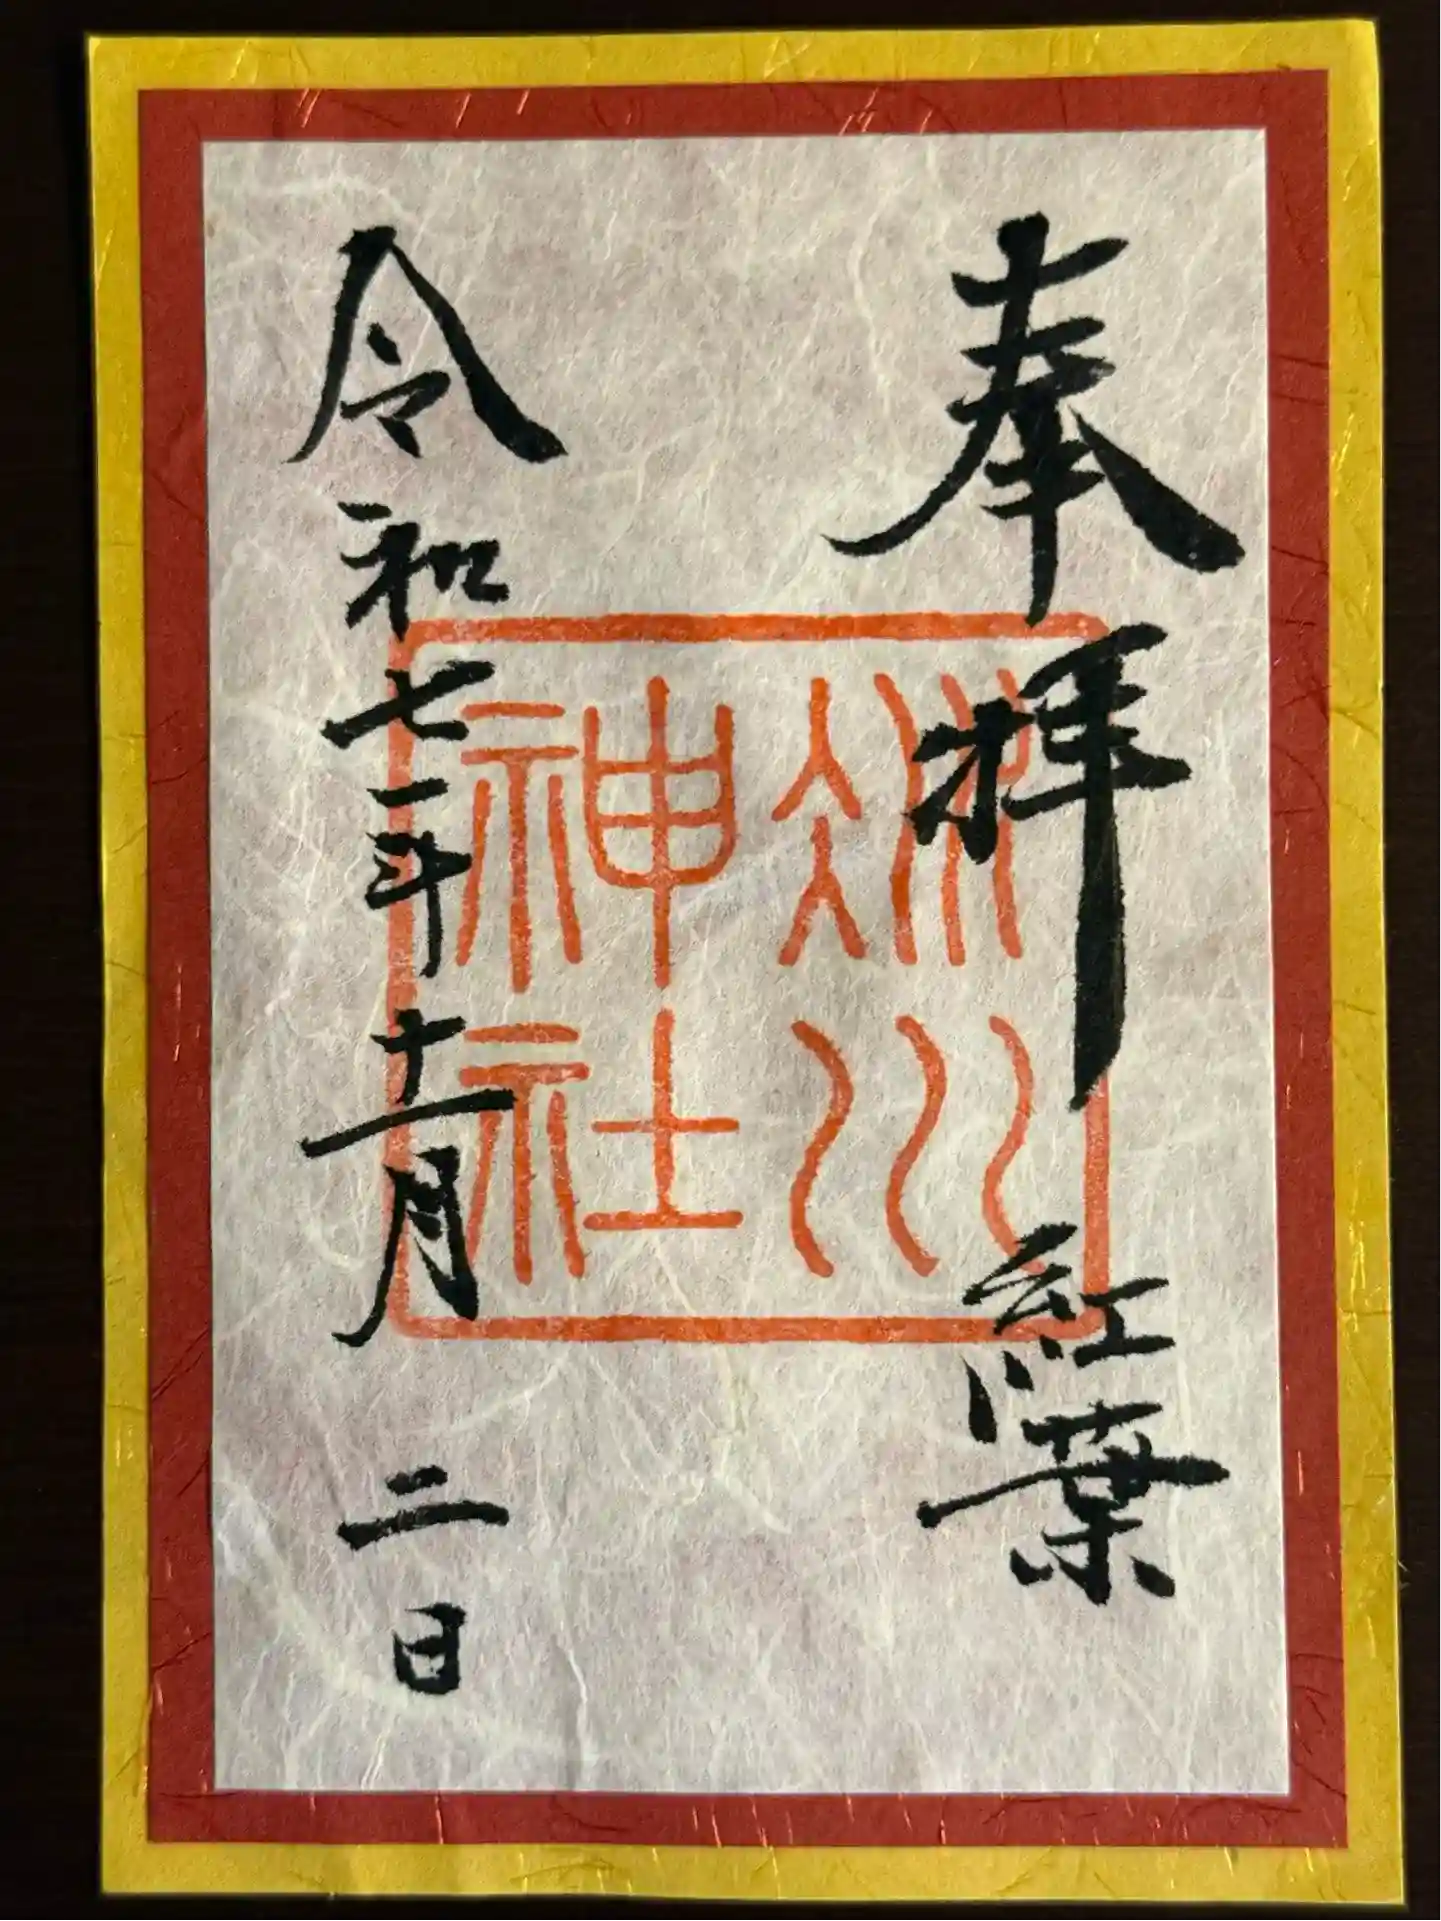 奉拝 紅葉
冰川
神社
令和七年十一月二日